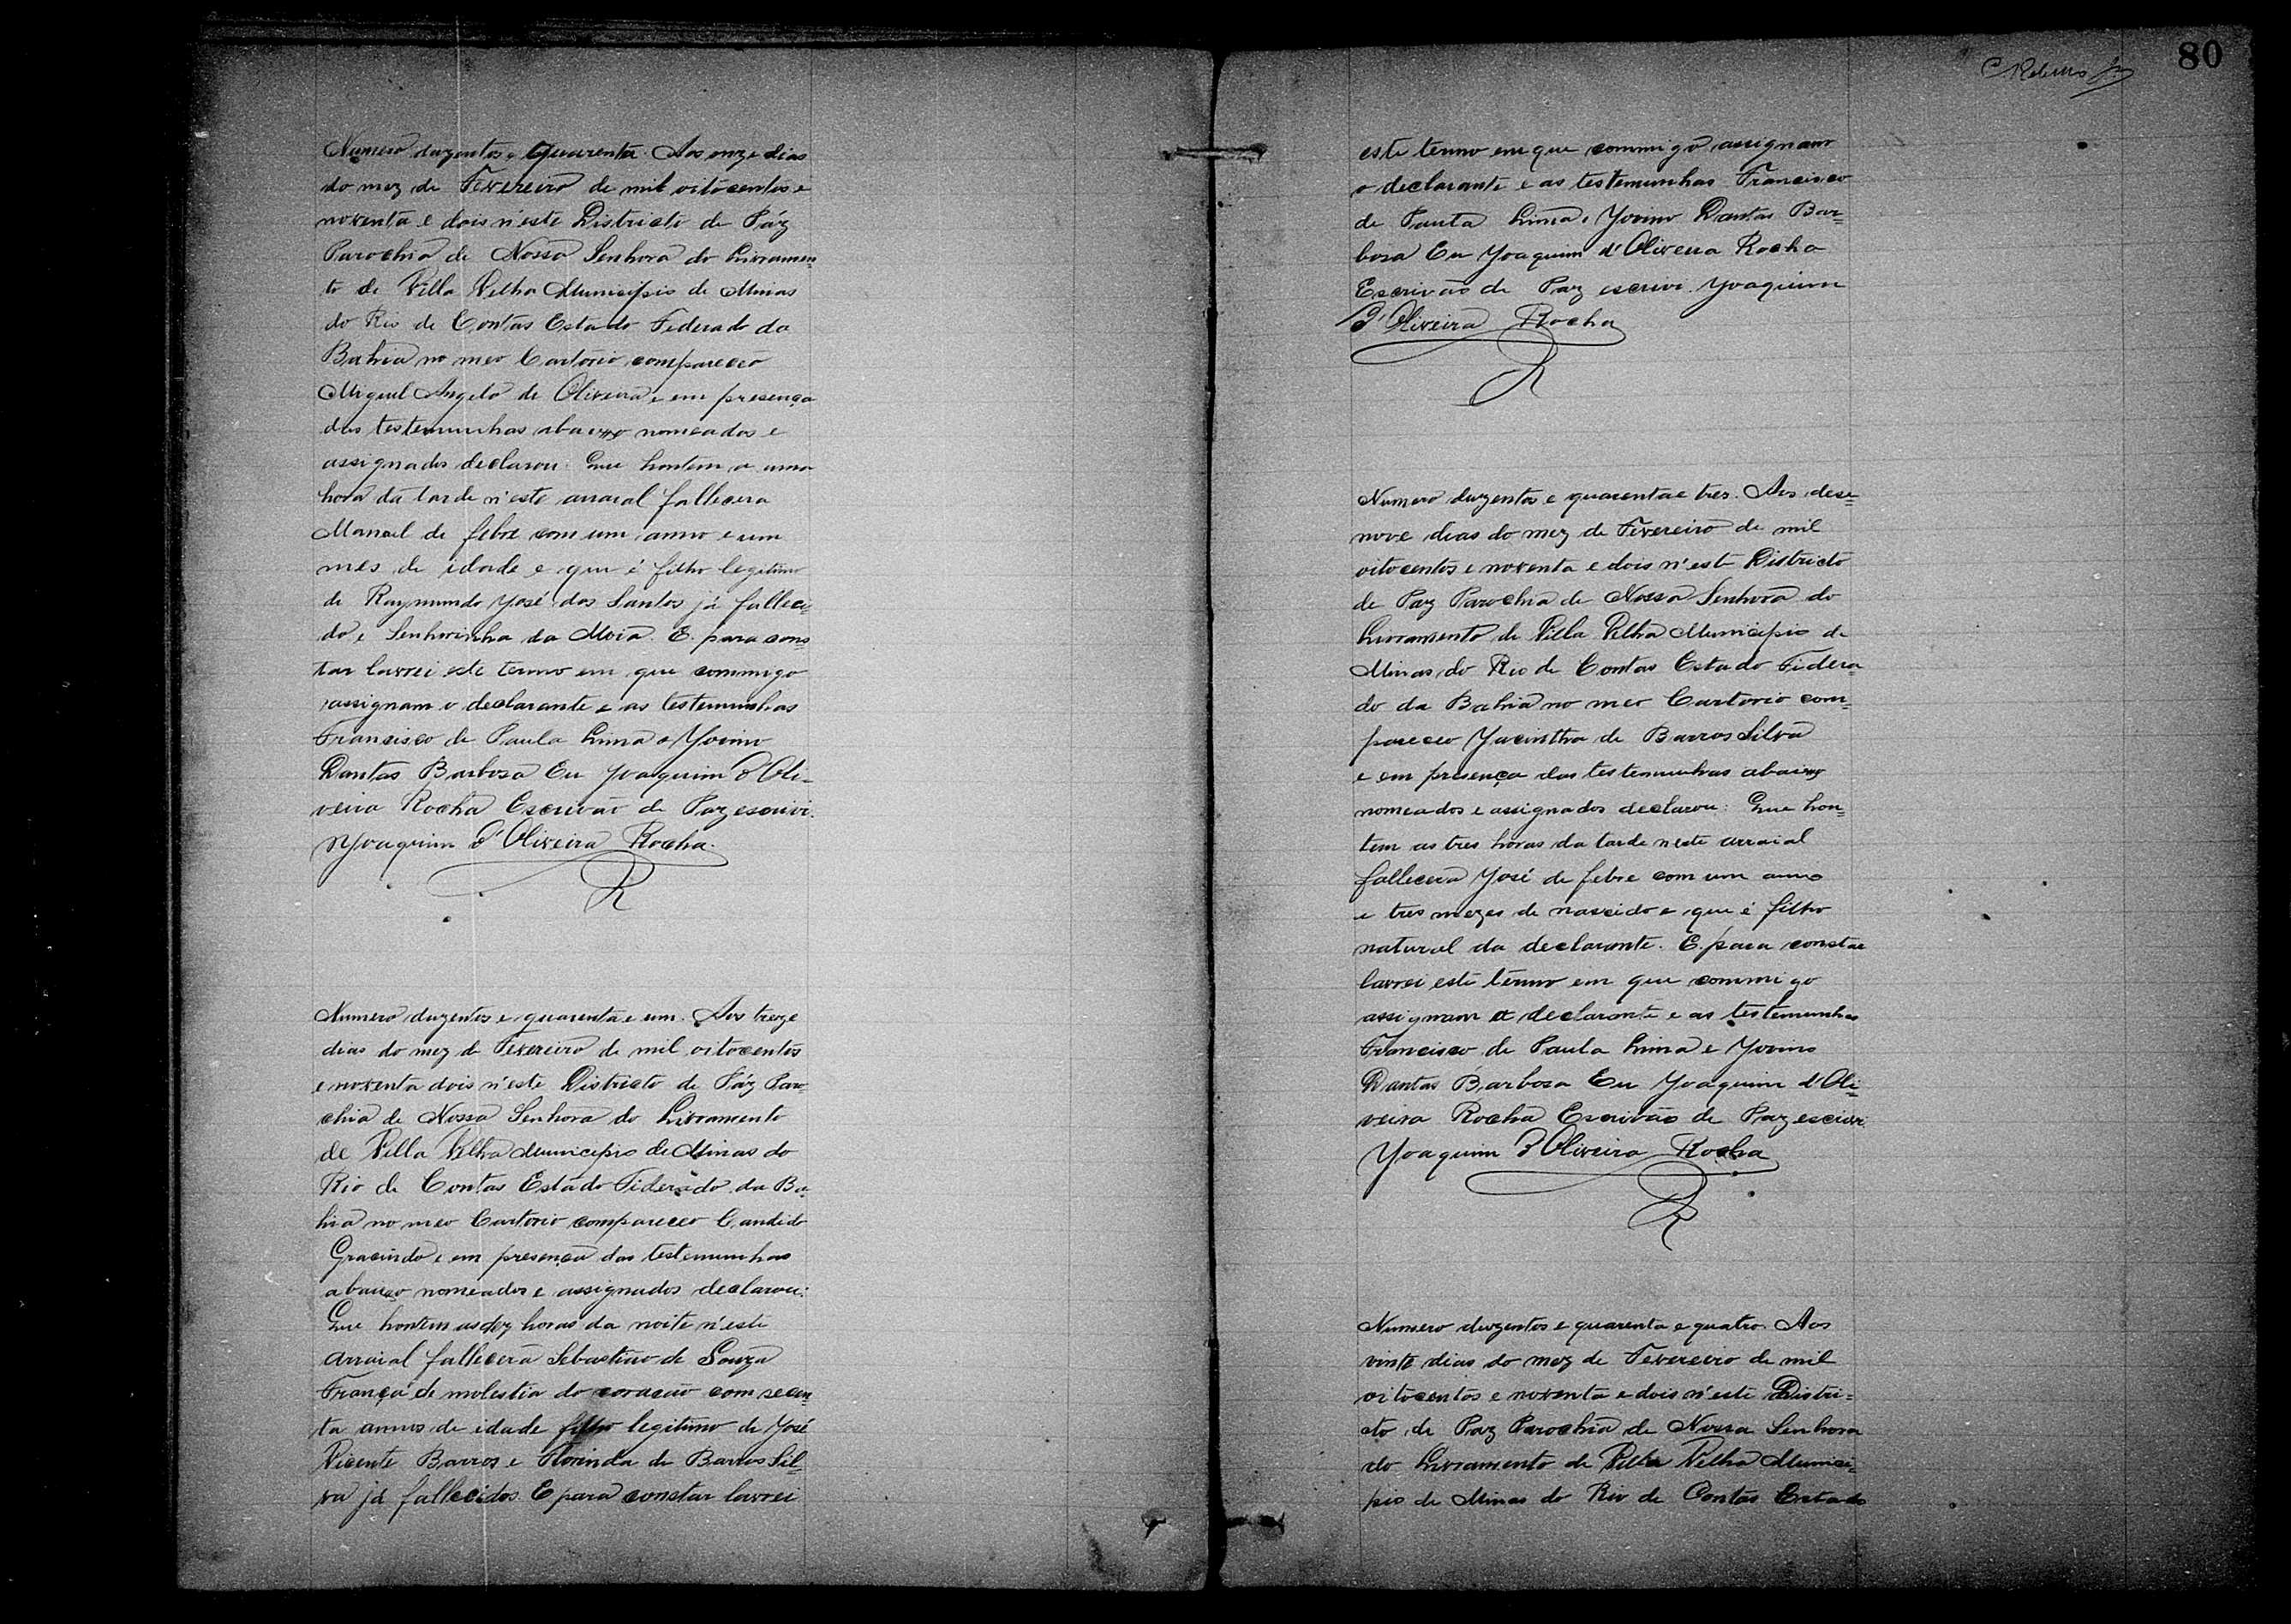 Numero duzentos e Quarenta. Aos onze dias
do mez de Fevereiro de mil oitocentos e
noventa e dois n'este Districto de Páz
Parochia de Nossa Senhora do Livramen
to de Villa Velha Municipio de Minas
do Rio de Contas Estado Federado da
Bahia no meo Cartorio compareceo
Miguel Angelo de Oliveira e em presença
das testemunhas abaixo nomeados e
assignados declarou: Que hontem a uma
hora da tarde n'este arraial fallecera
Manoel de febre com um anno e um
mes de idade e que é filho legitimo
de Raymundo José dos Santos já falleci
do e Senhorinha da Moia. E para cons
tar lavrei este termo em que commigo
assignam o declarante e as testemunhas
Francisco de Paula Lima e Jovino
Dantas Barbosa Eu Joaquim d'Oli-
veira Rocha Escrivão de Paz escrivi.
Joaquim d'Oliveira Rocha.
R
Numero duzentos e quarenta e um. Aos treze
dias do mez de Fevereiro de mil oitocentos
e noventa dois n'este Districto de Páz Paro
chia de Nossa Senhora do Livramento
de Villa Velha Municipio de Minas do
Rio de Contas Estado Federado da Ba-
hia no meo Cartorio compareceo Candido
Gracindo e em presença das testemunhas
abaixo nomeados e assignados declarou:
Que hontem as dez horas da noite n'este
arraial fallecera Sebastião de Souza
França de molestia do coração com secen
ta annos de idade filho legitimo de José
Vicente Barros e Florinda de Barros Sil-
va já fallecidos. E para constar lavrei
80
este termo em que commigo assignam
o declarante e as testemunhas Francisco
de Paula Lima e Jovino Dantas Bar=
bosa Eu Joaquim d'Oliveira Rocha
Escrivão de Paz escrivi. Joaquim
d'Oliveira Rocha
R
Numero duzentos e quarenta e tres. Aos deze=
nove dias do mez de Fevereiro de mil
oitocentos e noventa e dois n'este Districto
de Paz Parochia de Nossa Senhora do
Livramento de Villa Velha Municipio de
Minas do Rio de Contas Estado Federa=
do da Bahia no meo Cartorio com=
pareceo Jacintha de Barros Silva
e em presença das testemunhas abaixo
nomeados e assignados declarou: Que hon=
tem as tres horas da tarde neste arraial
fallecera José de febre com um anno
e tres mezes de nascido e que é filho
natural da declarante. E para constar
lavrei este termo em que commigo
assignam a declarante e as testemunhas
Francisco de Paula Lima e Jovino
Dantas Barbosa Eu Joaquim d'Oli=
veira Rocha Escrivão de Paz escrivi.
Joaquim d'Oliveira Rocha
R
Numero duzentos e quarenta e quatro. Aos
vinte dias do mez de Fevereiro de mil
oitocentos e noventa e dois n'este Distri=
cto de Paz Parochia de Nossa Senhora
do Livramento de Villa Velha Munici=
pio de Minas do Rio de Contas Estado